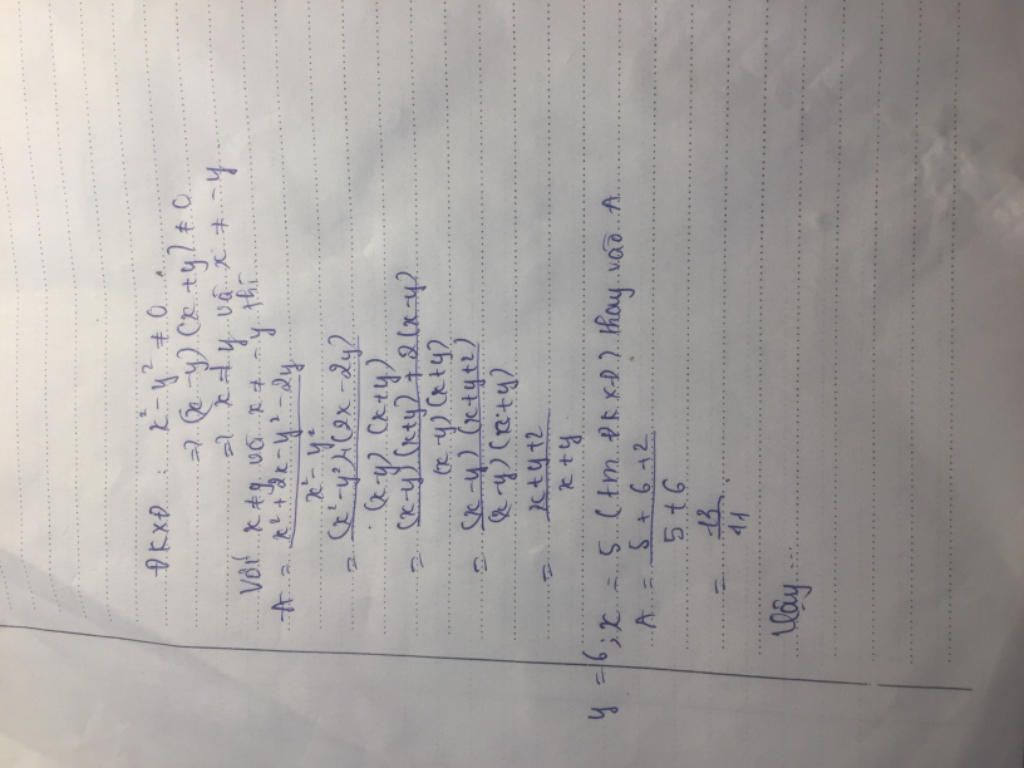 ĐKXĐ: x² - y² ≠ 0
=> (x - y) (x + y) ≠ 0
=> x ≠ y và x ≠ - y
Với x ≠ y và x ≠ - y thì
A = x² + 2x - y² - 2y / x² - y²
= (x² - y²) + (2x - 2y) / (x - y) (x + y)
= (x - y) (x + y) + 2 (x - y) / (x - y) (x + y)
= (x - y) (x + y + 2) / (x - y) (x + y)
= x + y + 2 / x + y
y = 6; x = 5 (tm ĐKXĐ) thay vào A
A = 5 + 6 + 2 / 5 + 6
= 13 / 11
Vậy ...